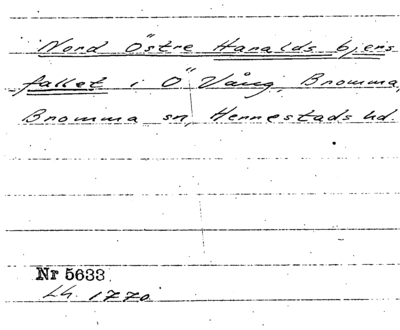 Nord Östre Haralds bjers
fallet i Ö Vång, Bromma,
Bromma sn, Herrestads hd.
Nr 5633.
Lh. 1770